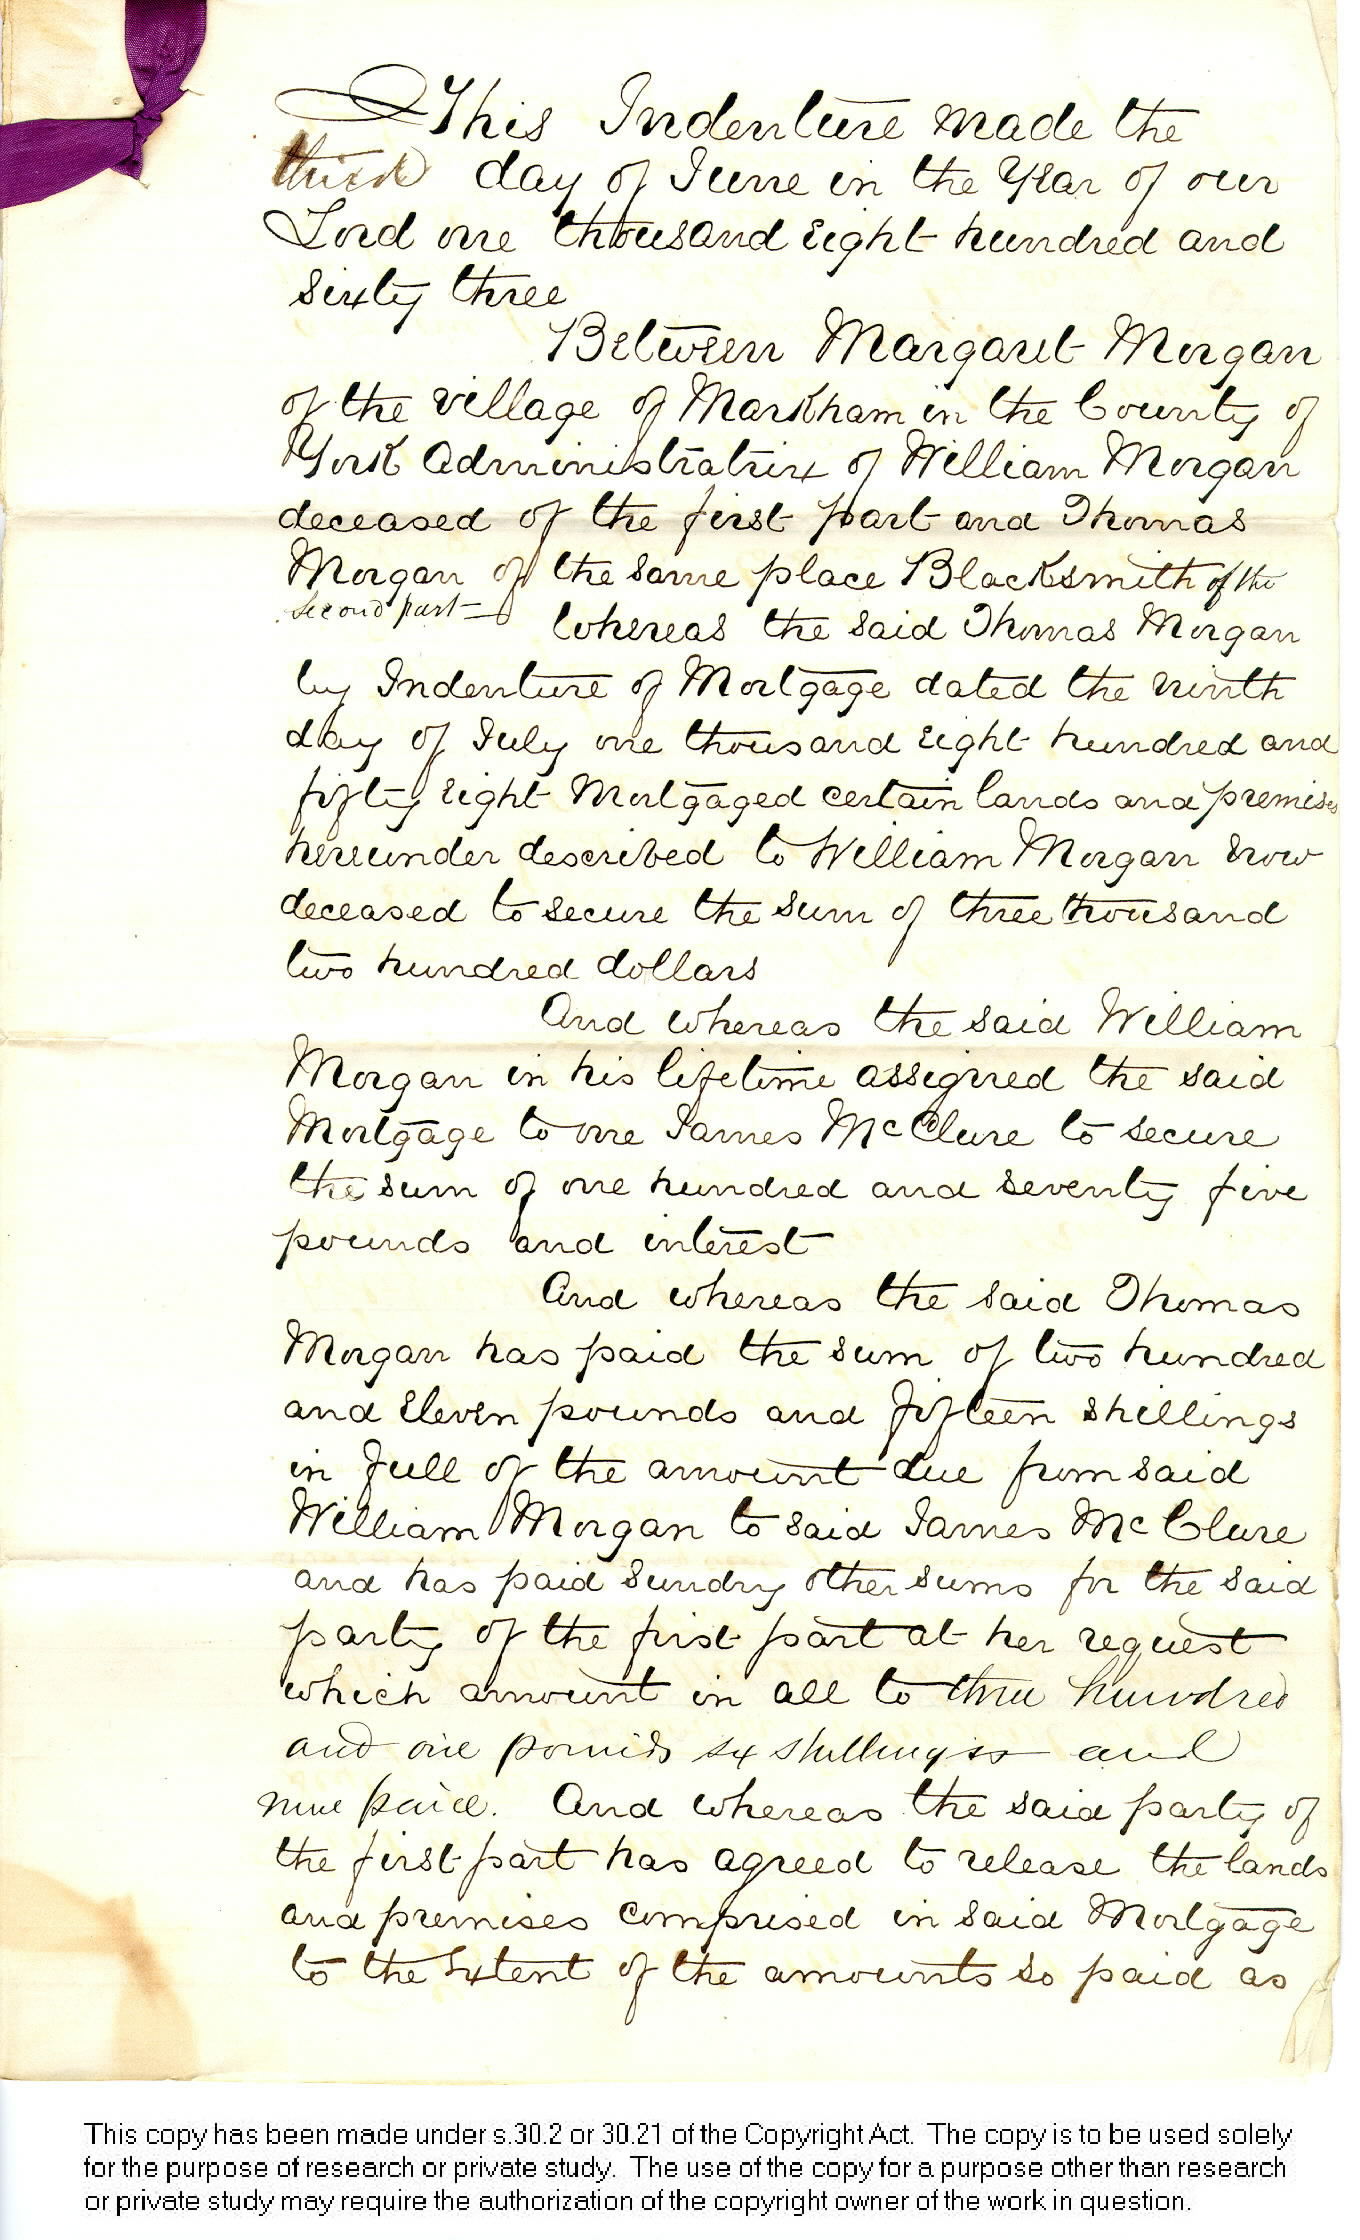 This Indenture made the
third day of June in the Year of our
Lord one thousand Eight hundred and
sixty three
Between Margaret Morgan
of the village of Markham in the County of
York Administratrix of William Morgan
deceased of the first part and Thomas
Morgan of the same place Blacksmith of the
second part
Whereas the said Thomas Morgan
by Indenture of Mortgage dated the ninth
day of July one thousand eight hundred and
fifty eight Mortgaged certain lands and premises
hereunder described to William Morgan now
deceased to secure the sum of three thousand
two hundred dollars
And whereas the said William
Morgan in his lifetime assigned the said
Mortgage to one James McClure to secure
the sum of one hundred and seventy five
pounds and interest
And whereas the said Thomas
Morgan has paid the sum of two hundred
and eleven pounds and fifteen shillings
in full of the amount due from said
William Morgan to said James McClure
and has paid sundry other sums for the said
party of the first part at her request
which amount in all to three hundred
and one pounds six shillings and
nine pence. And whereas the said party of
the first part has agreed to release the lands
and premises comprised in said Mortgage
to the extent of the amounts so paid as
This copy has been made under s.30.2 or 30.21 of the Copyright Act. The copy is to be used solely
for the purpose of research or private study. The use of the copy for a purpose other than research
or private study may require the authorization of the copyright owner of the work in question.